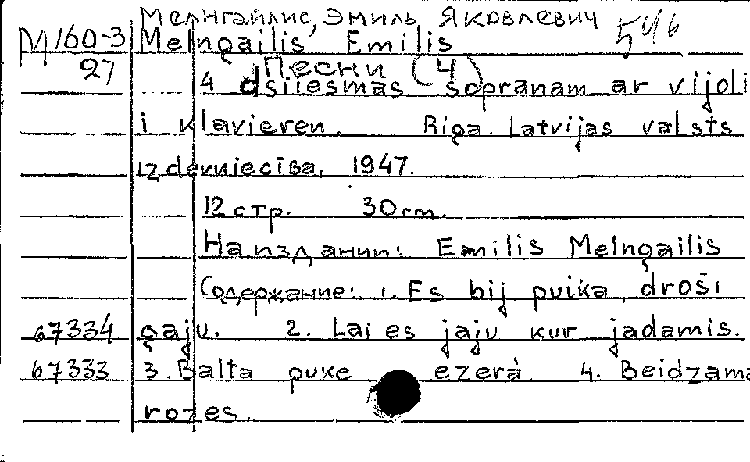 Мелнгайлис, Эмиль Яковлевич
М160-3 Melngailis Emilis 546
27 Песни (4)
4 dsiiesmas sopranam ar vijoli
i klavieren. Riga Latvijas valsts
izdevnieciba, 1947.
12 стр. 30 cm.
На издании: Emilis Melngailis
Содержание: 1. Es bij puika droši
67334 gaju. 2. Lai es jaju kur jadamis.
67333 3. Balta puke ezerà 4. Beidzama
rozes.